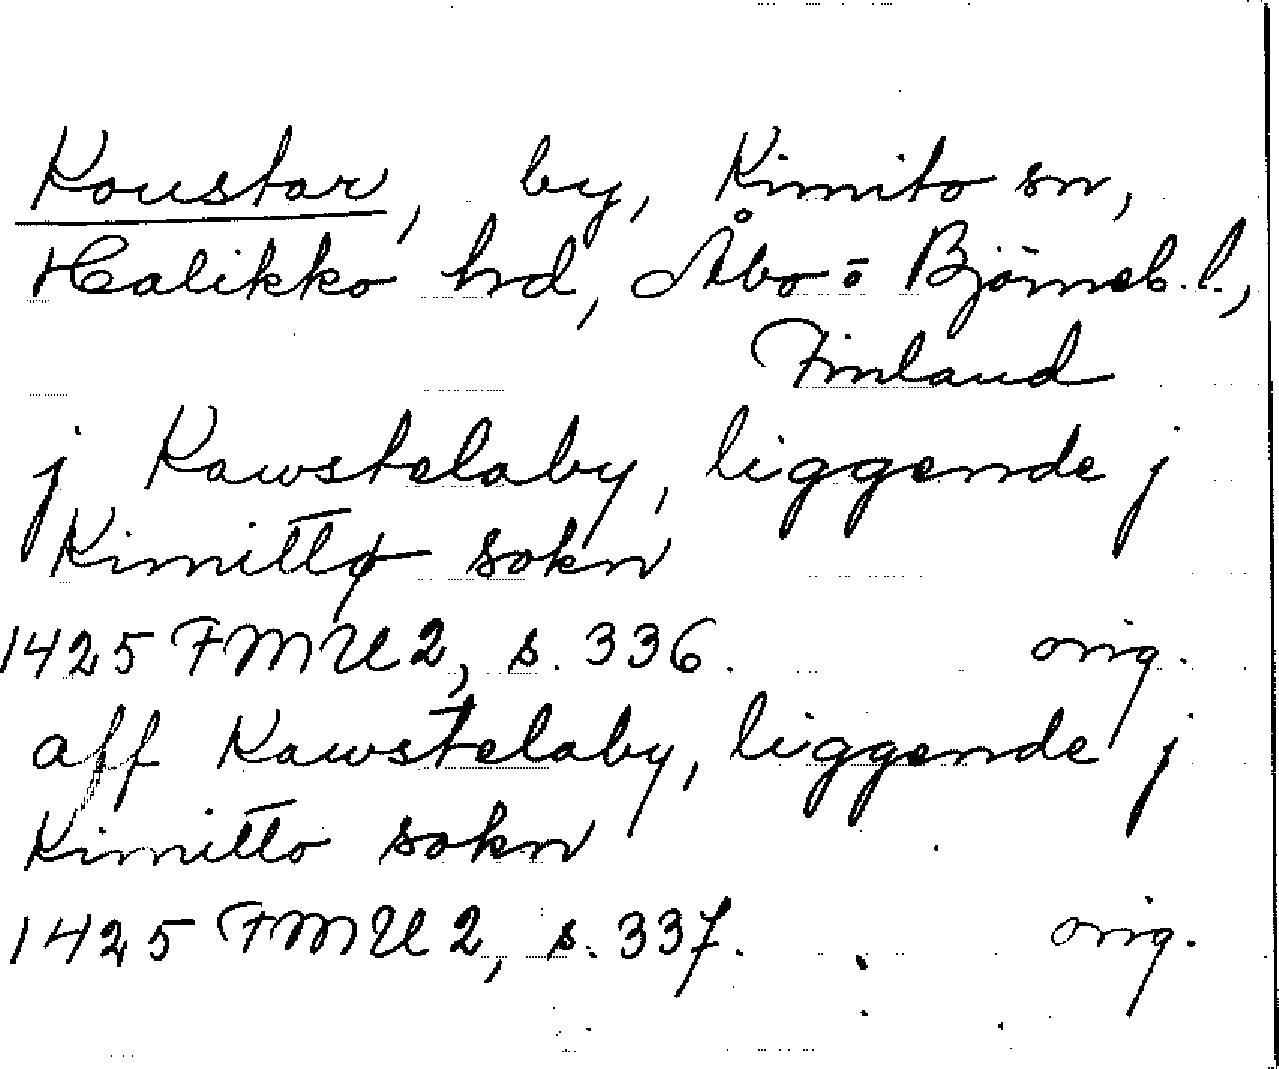 Koustar, by, Kimito sn,
Halikko hd, Åbo o Björneb. l.,
Finland
j Kawstelaby, liggende j
Kimittø sokn
1425 FMU 2, s. 336. orig.
aff Kawstelaby, liggende j
Kimitto sokn
1425 FMU 2, s. 337. orig.